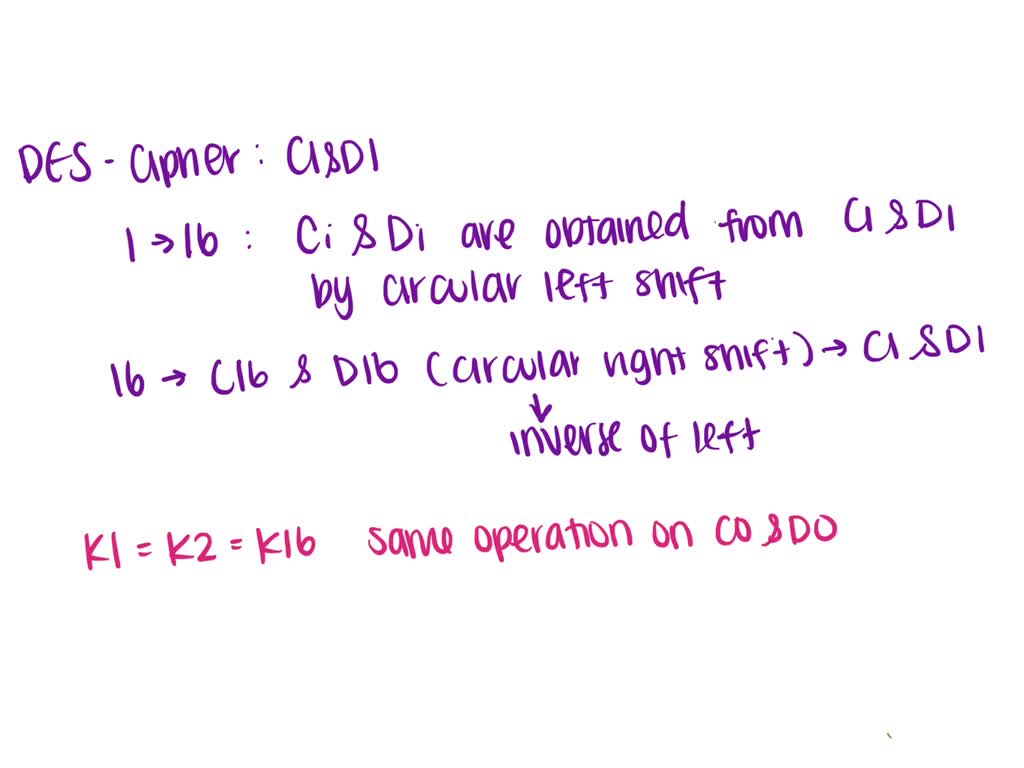 DES - Cipher : C1 & D1
1 → 16 : Ci & Di are obtained from C1 & D1
by circular left shift
16 → C16 & D16 (circular right shift) → C1 & D1
↓
inverse of left
K1 = K2 = K16 same operation on C0 & D0